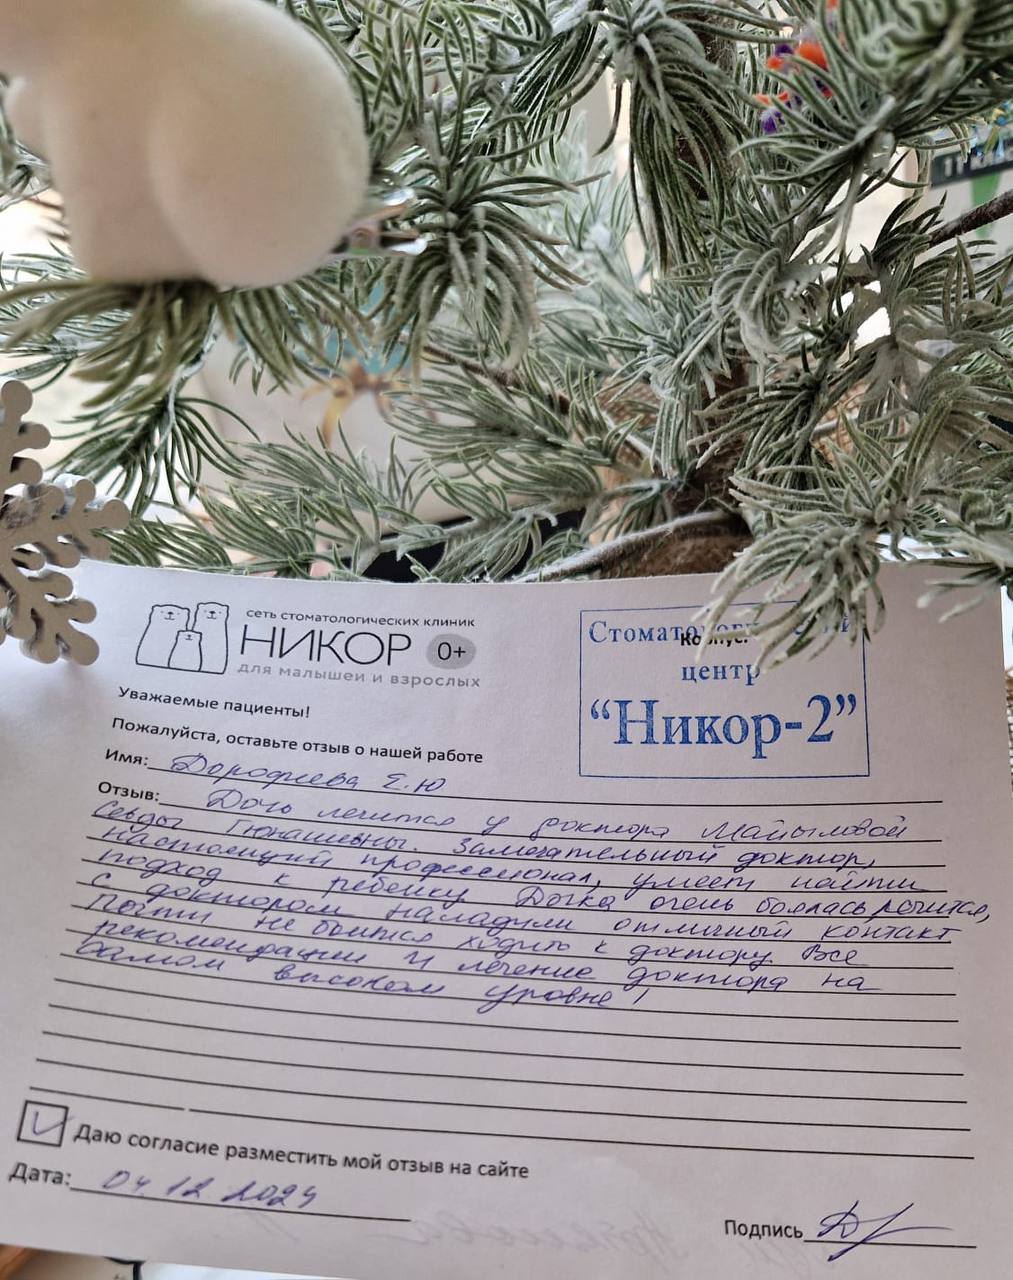 сеть стоматологических клиник
НИКОР 0+
для малышей и взрослых
Корпус
центр
"Никор-2"
Уважаемые пациенты!
Пожалуйста, оставьте отзыв о нашей работе
Имя: Дорофеева Е.Ю
Отзыв: Дочь лечится у доктора Майыловой
Севды Гюнашевны. Замечательный доктор,
настоящий профессионал, умеет найти
подход к ребенку. Дочка очень боялась лечится,
с доктором наладили отличный контакт
почти не боится ходить к доктору. Все
рекомендации и лечение доктора на
самом высоком уровне!
Даю согласие разместить мой отзыв на сайте
Дата: 04.12.2024
Подпись